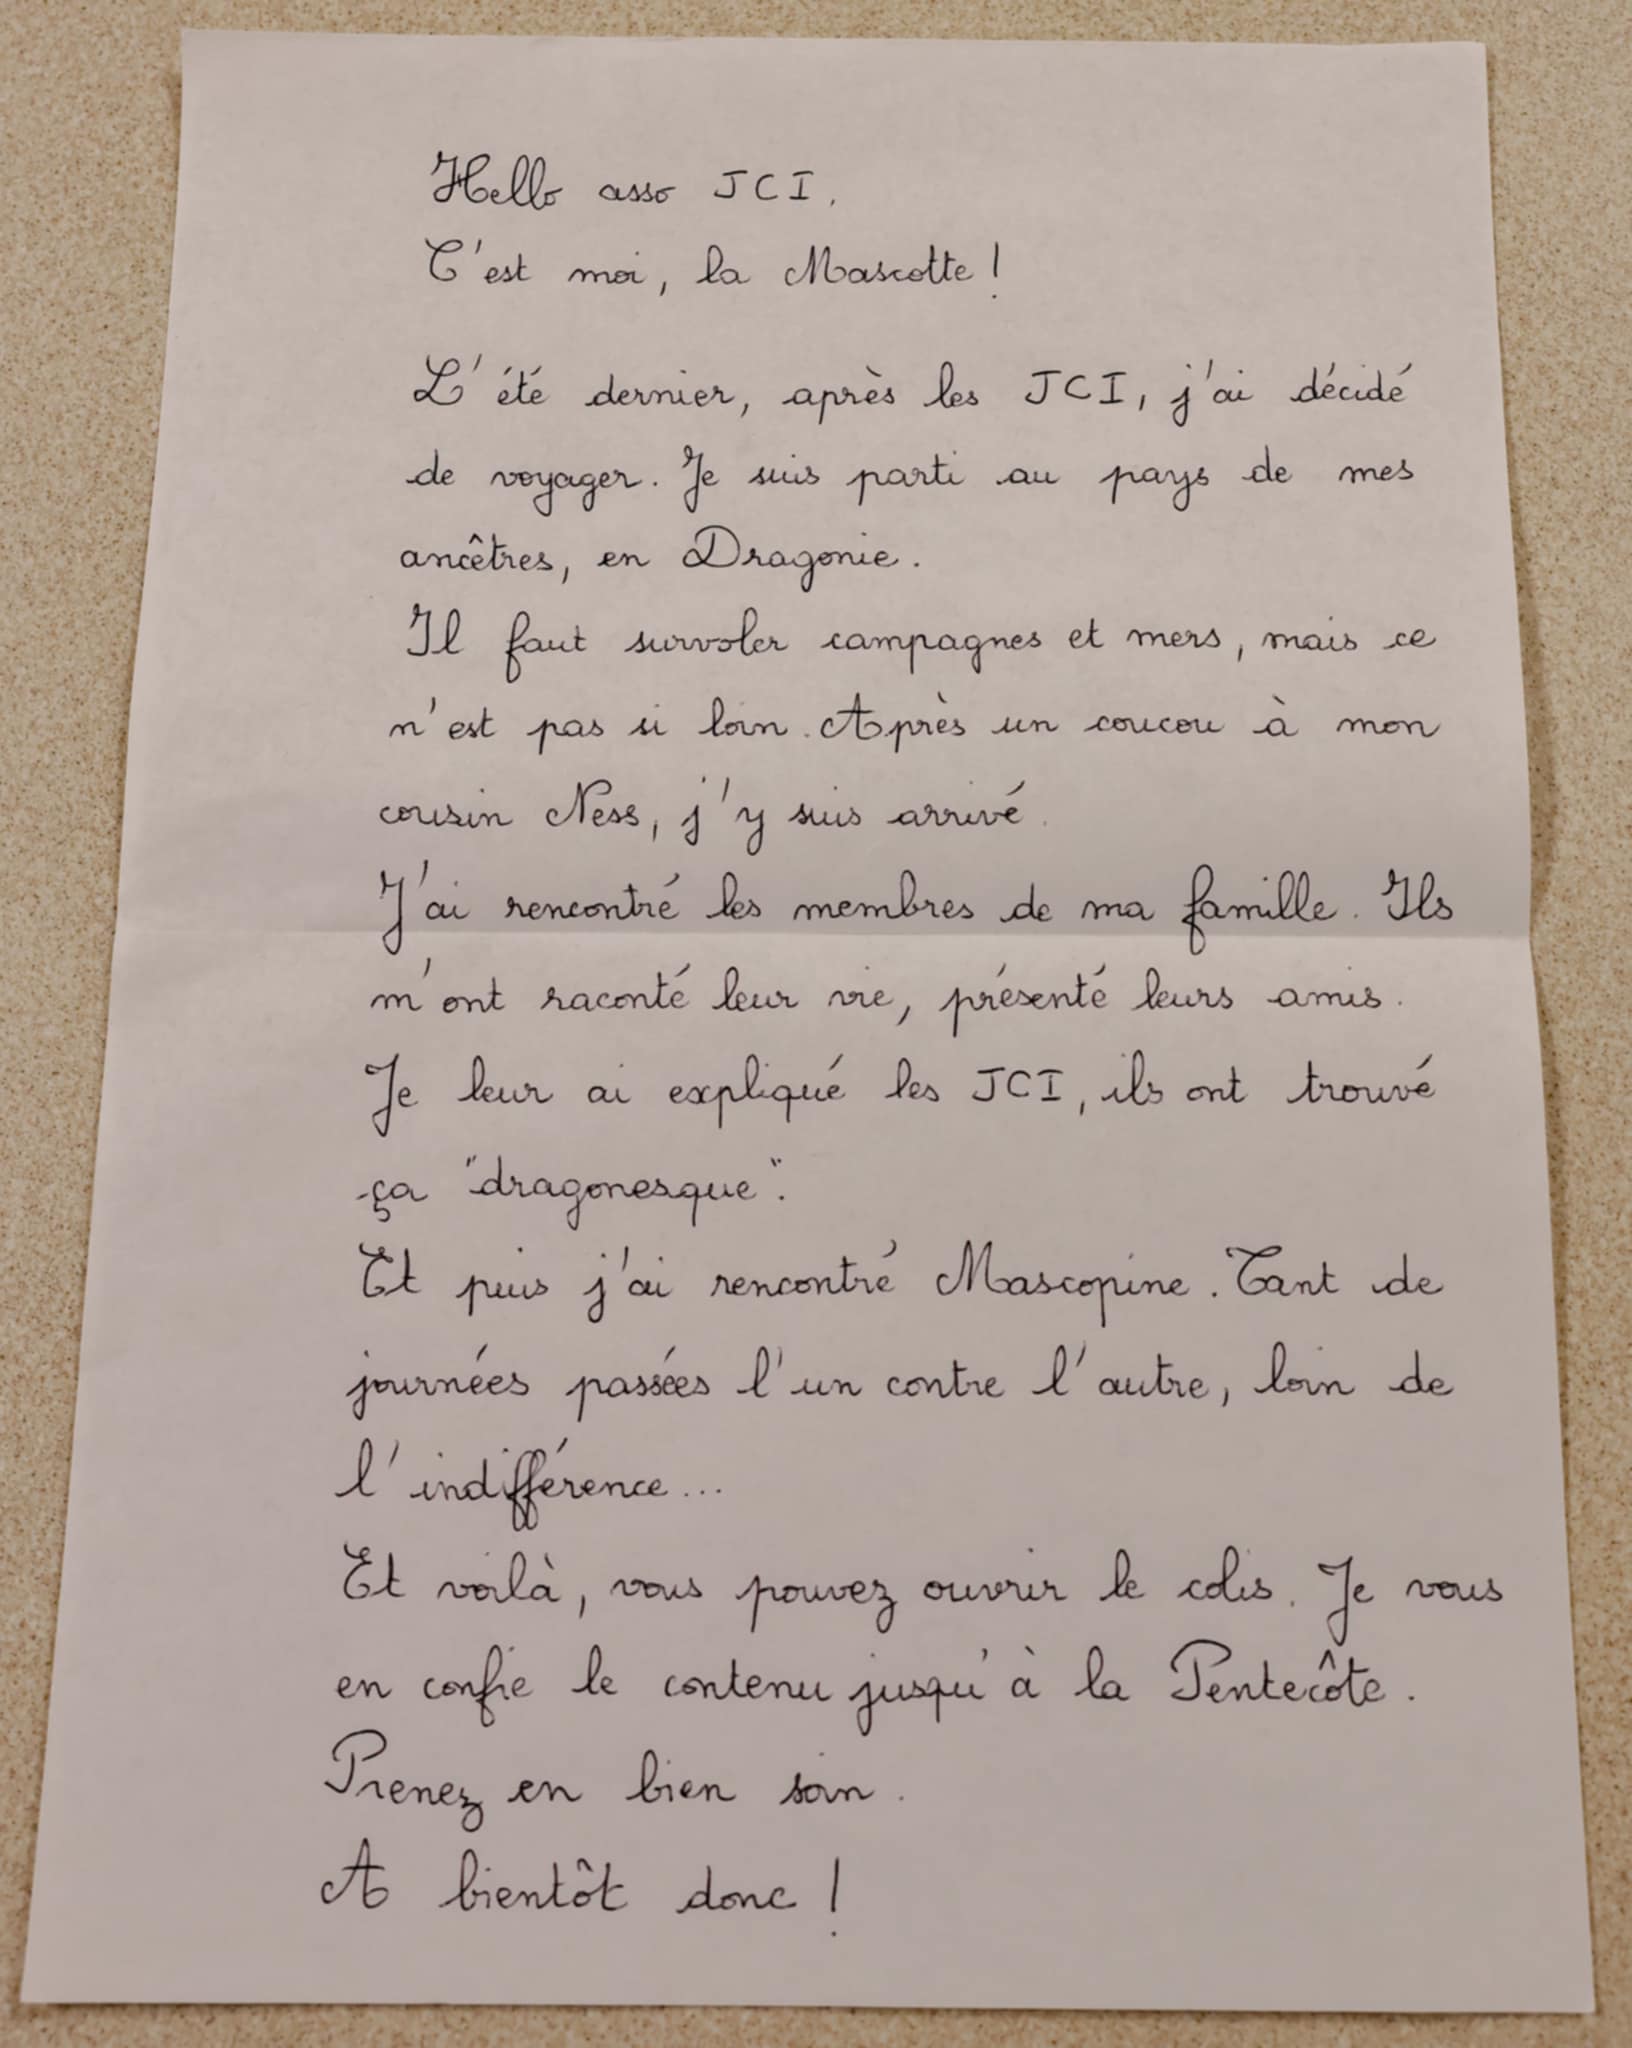 Hello asso JCI.
C'est moi, la Mascotte !
L'été dernier, après les JCI, j'ai décidé
de voyager. Je suis parti au pays de mes
ancêtres, en Dragonie.
Il faut survoler campagnes et mers, mais ce
n'est pas si loin. Après un coucou à mon
cousin Ness, j'y suis arrivé.
J'ai rencontré les membres de ma famille. Ils
m'ont raconté leur vie, présenté leurs amis.
Je leur ai expliqué les JCI, ils ont trouvé
ça "dragonesque".
Et puis j'ai rencontré Mascopine. Tant de
journées passées l'un contre l'autre, loin de
l'indifférence...
Et voilà, vous pouvez ouvrir le colis. Je vous
en confie le contenu jusqu'à la Pentecôte.
Prenez en bien soin.
A bientôt donc !